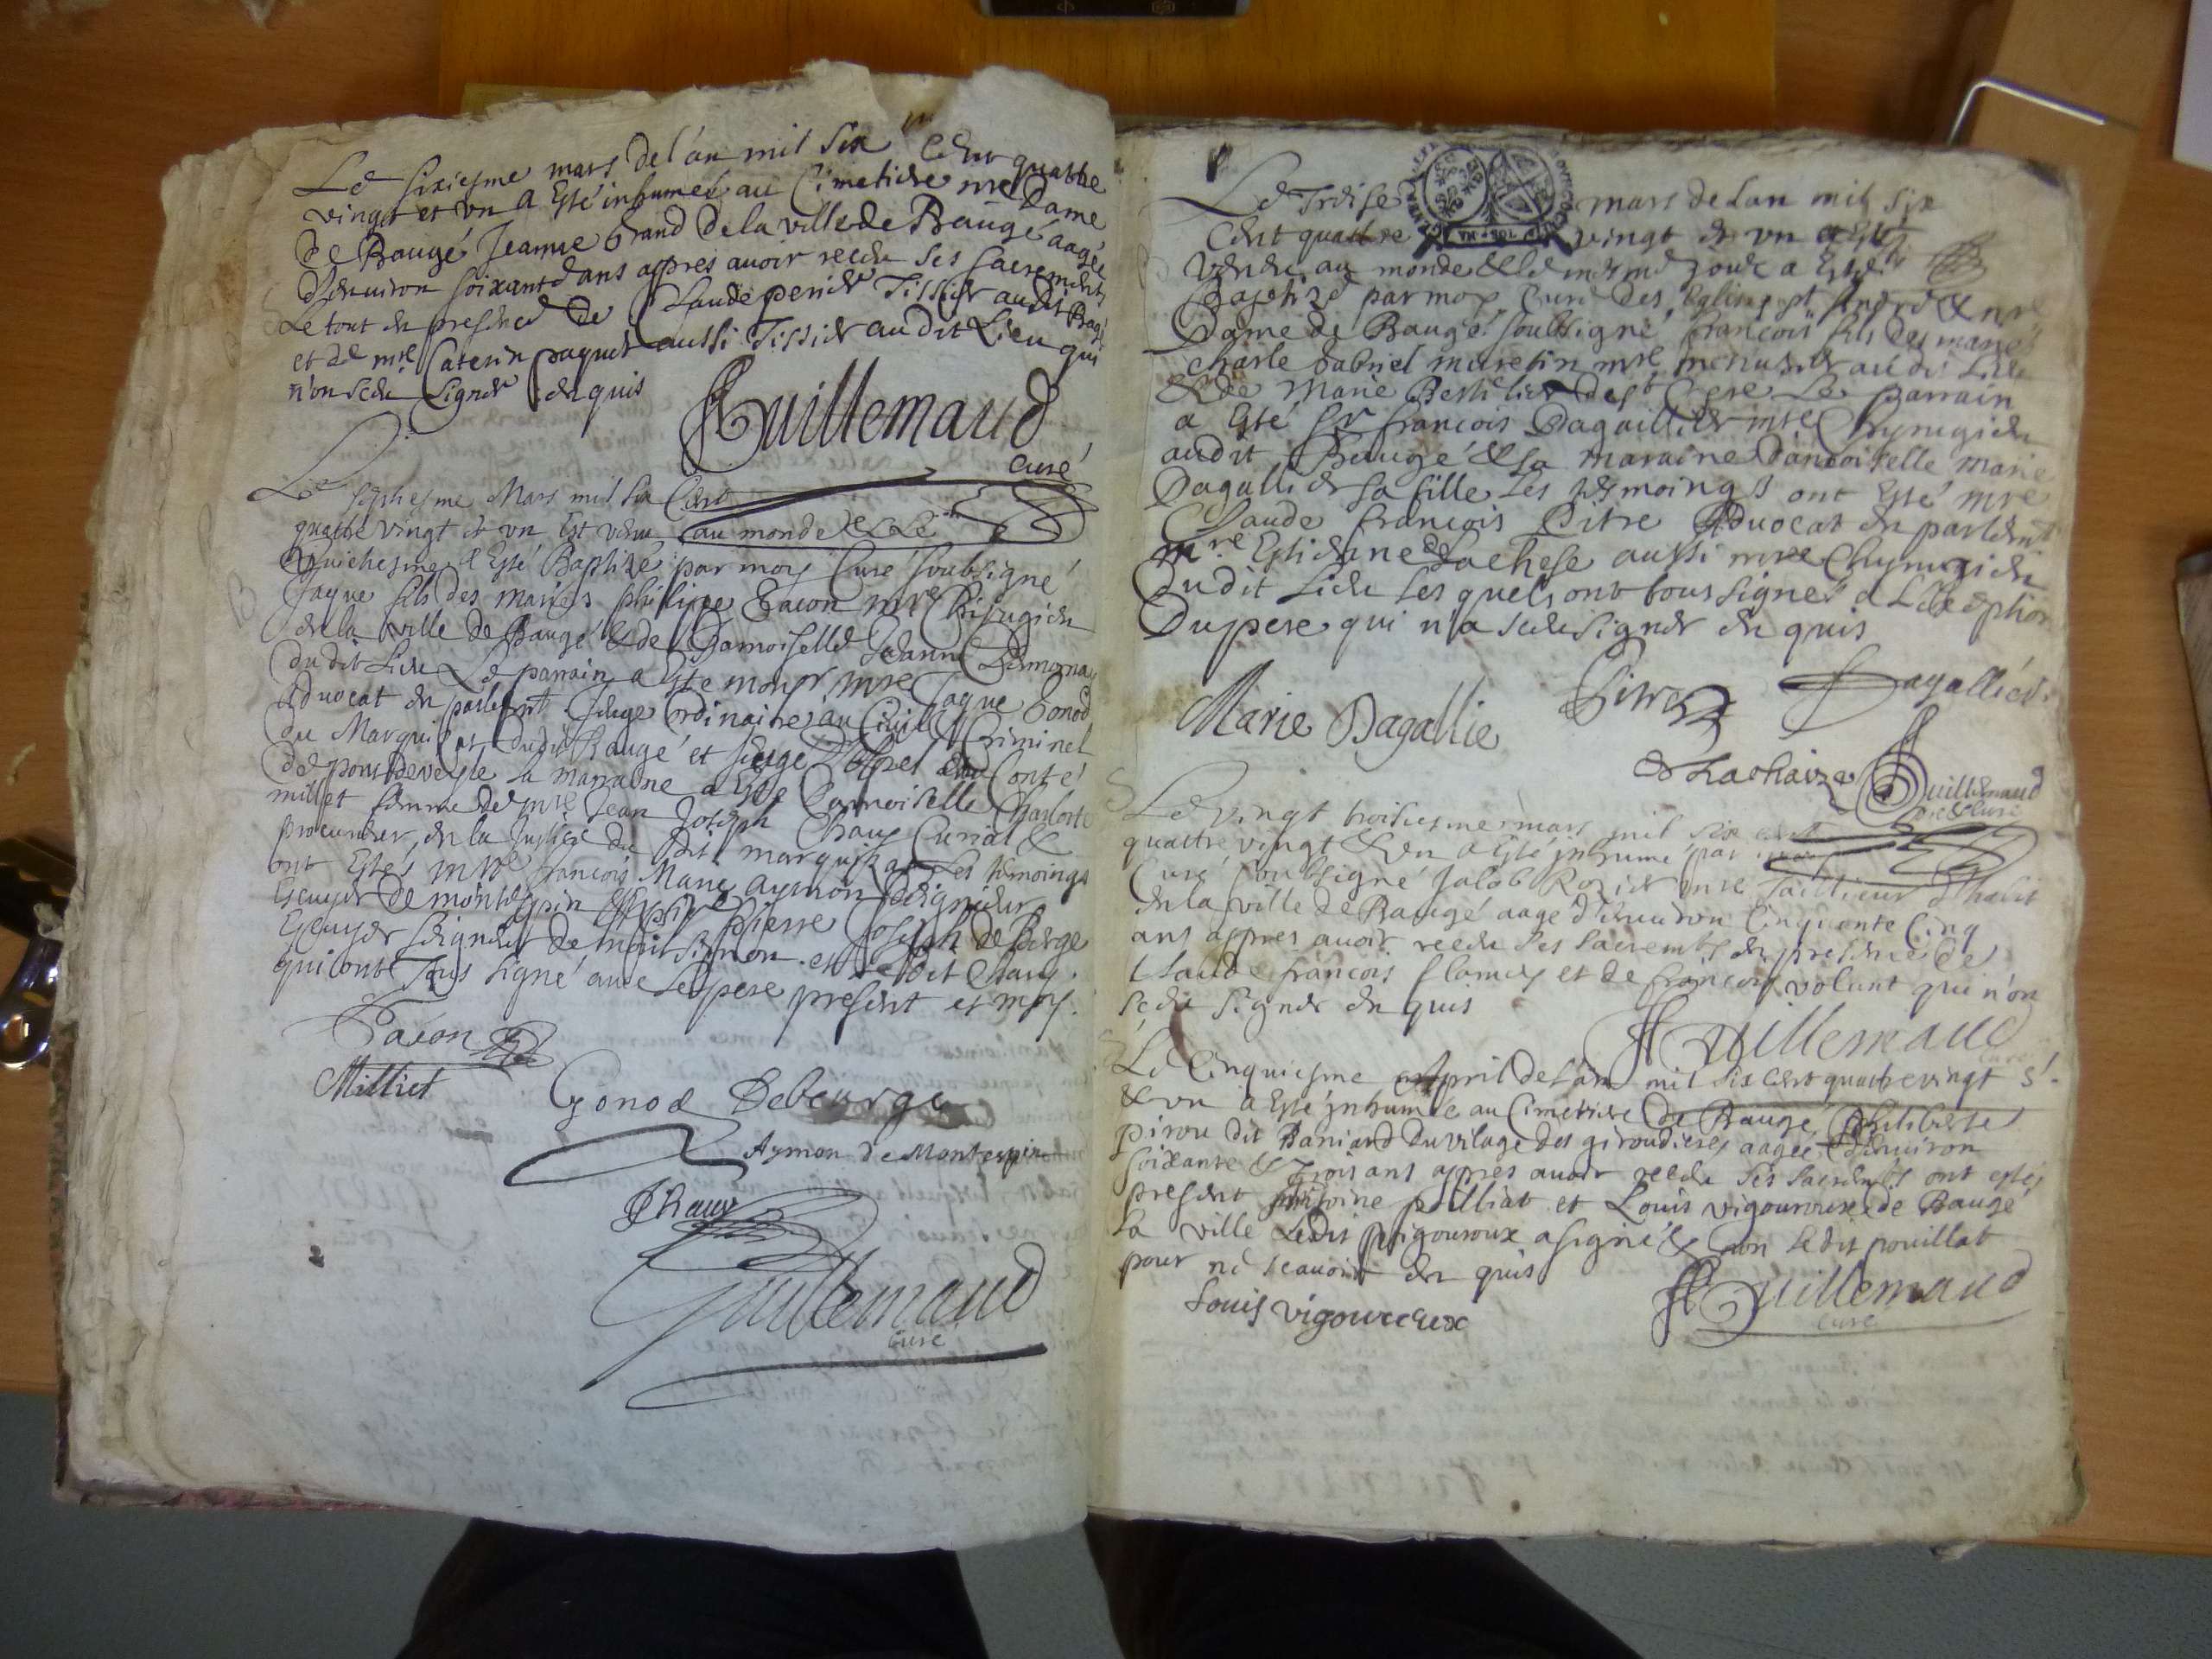 Le sixiesme mars de l'an mil six Cent quattre
vingt et vn a Esté inhumeé au Cimetiere nre Dame
de Baugé Jeanne brand de la ville de Baugé aagée
d'enuiron soixante ans appres auoir receu ses sacrements
Le tout en presence de Claude perier Tissier audit Baugé
et de mre Caterin paquet aussi Tissier au dit Lieu qui
n'on sceu signer enquis
Guillemaud
curé
Le septiesme Mars mil six Cent
quatre vingt et vn Est venu au monde & Le
huictiesme a Esté Baptizé par moy Curé soubsigné
Jaque fils des mariés philippe Facon mre Chirugien
de la ville de Baugé & de Damoiselle Jeanne
du dit Lieu Le parrain a Esté monsr mre Jaque Gonod
Aduocat en parlemt Juge ordinaire au Ciuil & Criminel
du Marquisat dudit Baugé et Juge d'appel du Conté
de pont de veyle la marraine a Esté Damoiselle Charlotte
milliet femme de mre Jean Joseph Chaux Curial &
procureur en la Justice du dit marquisat Les temoings
ont Estés mre François Marie aymon seigneur
Escuyer de montespin Pierre Joseph de Berge
Escuyer seigneur de et le dit Chaux
qui ont Tous signé auec le pere present et moy.
Facon
Milliet
Gonod Debeurge
Aymon de Montespin
Chaux
Guillemaud
Curé
Le Treise mars de lan mil six
Cent quattre vingt et vn a Esté
Venu au monde & le mesme jour a Esté
Baptizé par moy Curé des Eglises st André & nre
Dame de Baugé soubsigné francois fils des mariés
Charle Gabriel muretin mre menusier au dit Lieu
& de Marie Le parrain
a Esté Sr francois Dagallier mre Chyrugien
audit Baugé & la maraine Damoiselle Marie
Dagallier sa fille Les tesmoings ont Esté mre
Claude francois Pitre Aduocat en parlement
mre Estienne de Lachese aussi mre Chyrugien
du dit Lieu Les quels ont tous signés a L'exeption
Du pere qui n'a sceu signer en quis
Marie Dagallie
Pitre
Dagallier
de Lachaize
Guillemaud
pre & Curé
Le vingt troisiesme mars mil six cent
quattre vingt & vn a Esté inhumé par moy
Curé soubsigné Jacob Rozier mre Tailleur d'habit
de la ville de Baugé aagé d'enuiron Cinquente Cinq
ans appres auoir receu ses sacremts en presence de
Claude francois flamey et de françois volant qui n'on
sceu signer en quis
Guillemaud
curé
Le Cinquiesme Apuril de l'an mil six Cent quattre vingt
& vn a Esté inhumée au Cimetiere de Baugé Philiberte
pirou dit Baniard du vilage des giroudieres aagée d'enuiron
soixante & Trois ans appres auoir receu ses sacremts ont estés
present Antoine pouilliat et Louis vigouroux de Baugé
la ville Ledit Vigouroux a signé & non le dit pouillat
pour ne sçauoir en quis
Louis vigouroux
Guillemaud
Curé